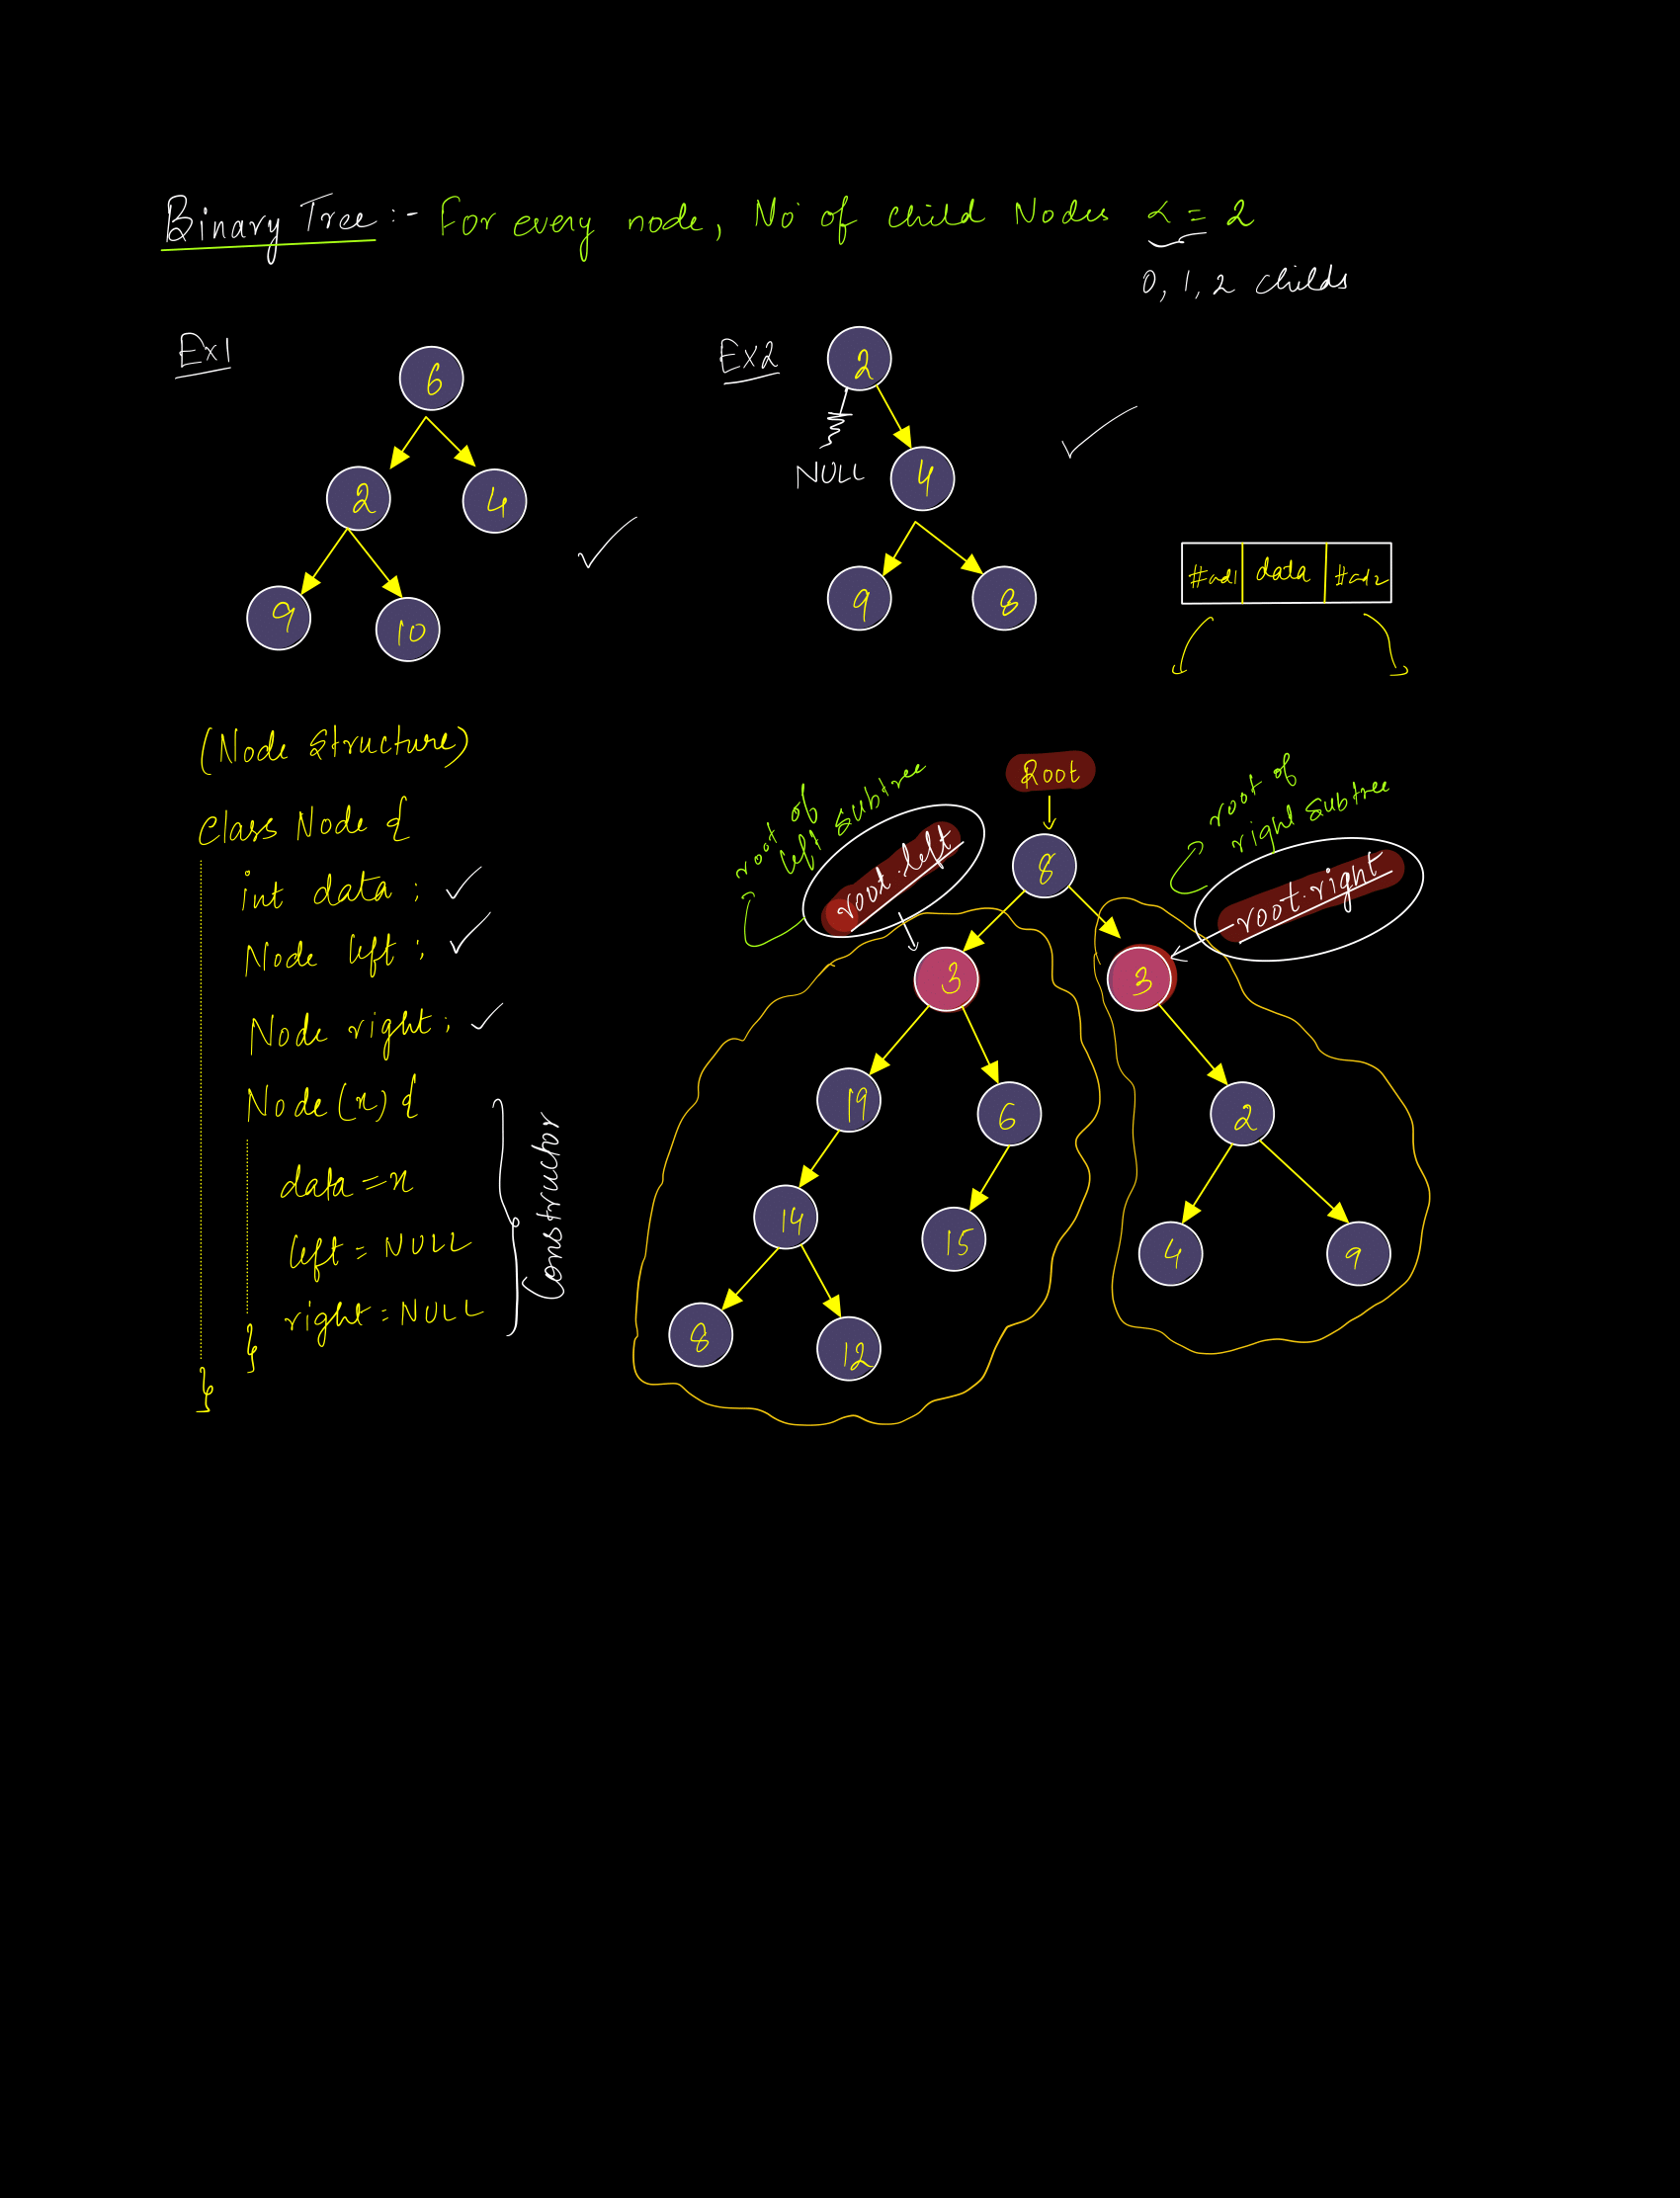 Binary Tree :- For every node, No of child Nodes <= 2
0, 1, 2 childs
Ex1
6
2
4
9
10
Ex2
2
NULL
4
9
8
#ad1 data #ad2
(Node Structure)
Class Node {
int data ;
Node left ;
Node right ;
Node (x) {
data = x
left = NULL
right = NULL
}
}
Constructor
Root
root of
left subtree
root.left
root of
right subtree
root.right
8
3
3
19
6
2
14
15
4
9
8
12